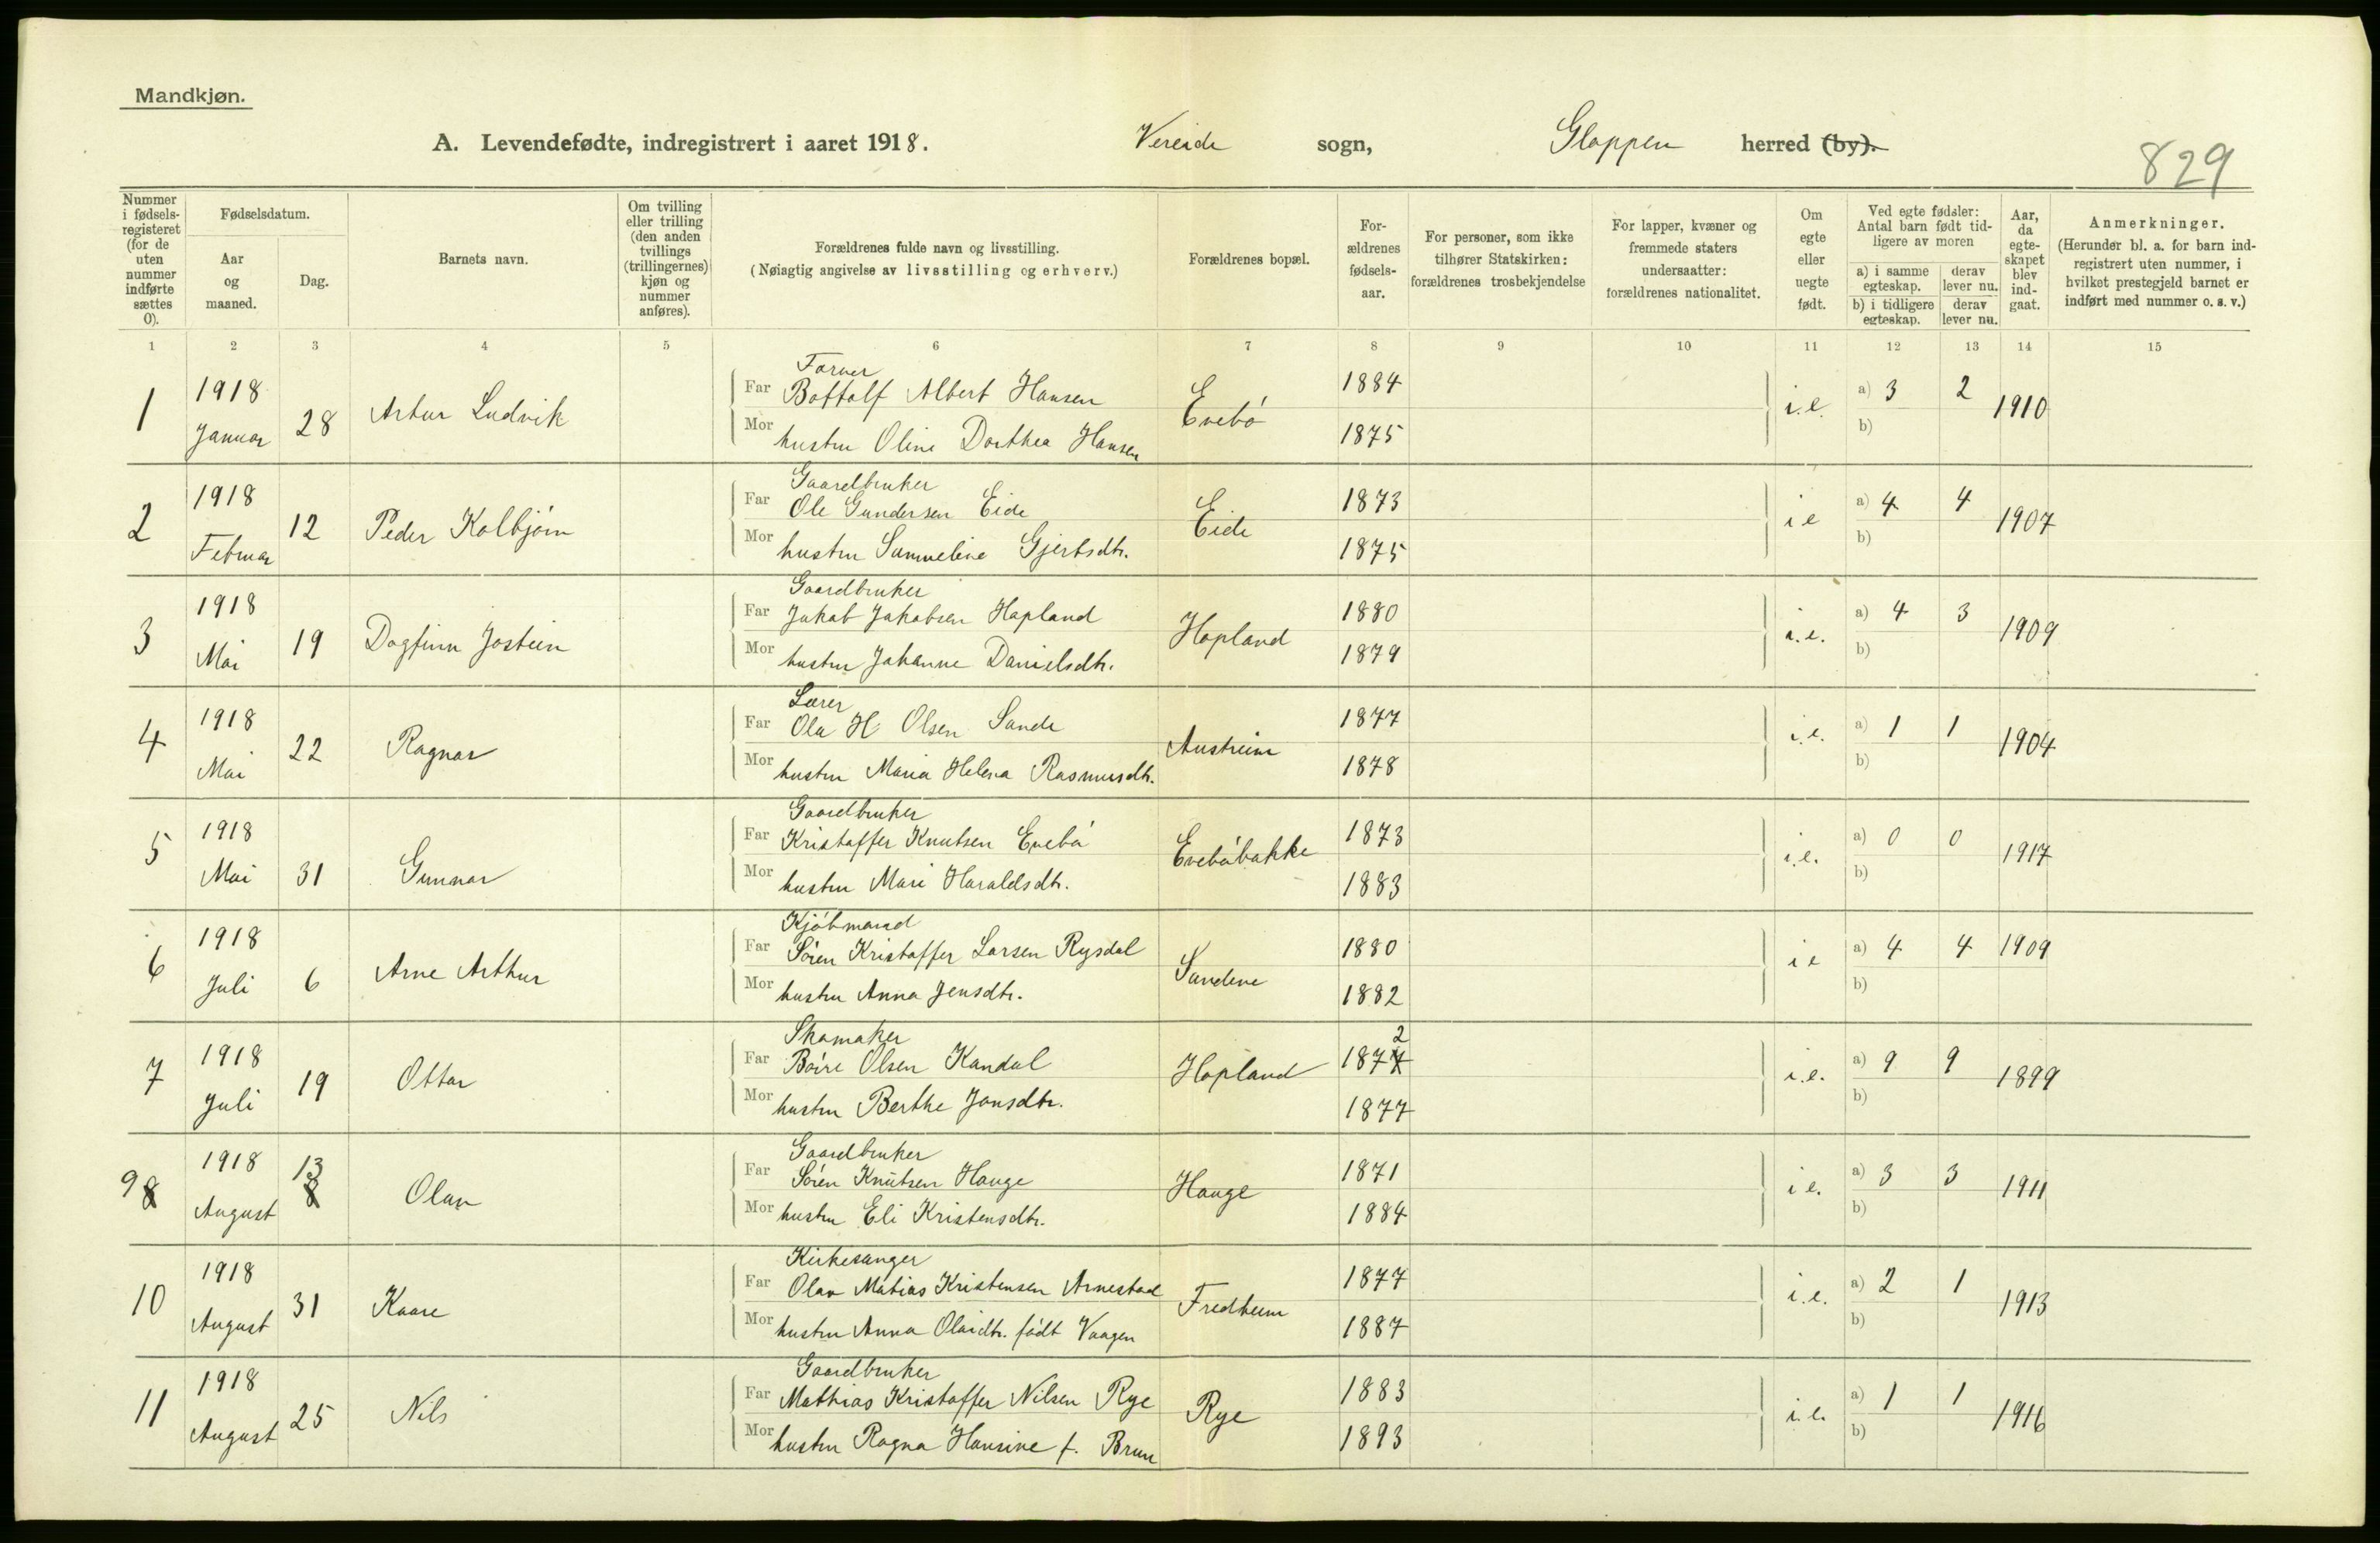 Mandkjøn.
A. Levendefødte, indregistrert i aaret 1918. Vereide sogn, Gloppen herred (by).
829
Nummer i fødselsregisteret (for de uten nummer indførte sættes 0).
Fødselsdatum.
Aar og maaned.
Dag.
Barnets navn.
Om tvilling eller trilling (den anden tvillings (trillingernes) kjøn og nummer anføres).
Forældrenes fulde navn og livsstilling.
(Nøiagtig angivelse av livsstilling og erhverv.)
Forældrenes bopæl.
Forældrenes fødselsaar.
For personer, som ikke tilhører Statskirken: forældrenes trosbekjendelse
For lapper, kvæner og fremmede staters undersaatter: forældrenes nationalitet.
Om egte eller uegte født.
Ved egte fødsler: Antal barn født tidligere av moren
a) i samme egteskap. derav lever nu.
b) i tidligere egteskap. derav lever nu.
Aar, da egteskapet blev indgaat.
Anmerkninger.
(Herunder bl. a. for barn indregistrert uten nummer, i hvilket prestegjeld barnet er indført med nummer o. s. v.)
1 2 3 4 5 6 7 8 9 10 11 12 13 14 15
Farver
1 1918 Januar 28 Artur Ludvik Far Bottolf Albert Hansen Evebö 1884 i.e. a) 3 2 1910
Mor hustru Oline Dorthea Hansen 1875 b)
Gaardbruker
2 1918 Februar 12 Peder Kolbjörn Far Ole Gundersen Eide Eide 1873 i e a) 4 4 1907
Mor hustru Sammeline Gjertsdtr. 1875 b)
Gaardbruker
3 1918 Mai 19 Dagfinn Jostein Far Jakob Jakobsen Hapland Hopland 1880 i.e. a) 4 3 1909
Mor hustru Johanne Danielsdtr. 1879 b)
Lærer
4 1918 Mai 22 Ragnar Far Ola H Olsen Sande Austreim 1877 i.e. a) 1 1 1904
Mor hustru Maria Helena Rasmusdtr. 1878 b)
Gaardbruker
5 1918 Mai 31 Gunnar Far Kristoffer Knutsen Evebö Eveböbakke 1873 i.e. a) 0 0 1917
Mor hustru Mari Haraldsdtr. 1883 b)
Kjöbmand
6 1918 Juli 6 Arne Arthur Far Sören Kristoffer Larsen Rysdal Sandene 1880 i e a) 4 4 1909
Mor hustru Anna Jensdtr. 1882 b)
Skomaker
7 1918 Juli 19 Ottar Far Böire Olsen Kandal Hopland 1877 2 i.e. a) 9 9 1899
Mor hustru Berthe Jonsdtr. 1877 b)
Gaardbruker
9 8 1918 August 13 8 Olav Far Sören Knutsen Hauge Hauge 1871 i e. a) 3 3 1911
Mor hustru Eli Kristensdtr. 1884 b)
Kirkesanger
10 1918 August 31 Kaare Far Olav Matias Kristensen Arnestad Fredheim 1877 i.e. a) 2 1 1913
Mor hustru Anna Olaidtr. födt Vaagen 1887 b)
Gaardbruker
11 1918 August 25 Nils Far Mathias Kristoffer Nilsen Rye Rye 1883 i.e. a) 1 1 1916
Mor hustru Ragna Hansine f. Brun 1893 b)